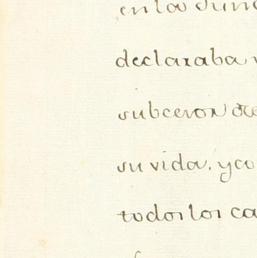 en los
declaraba
subceron
su vida, y co
todos los ca